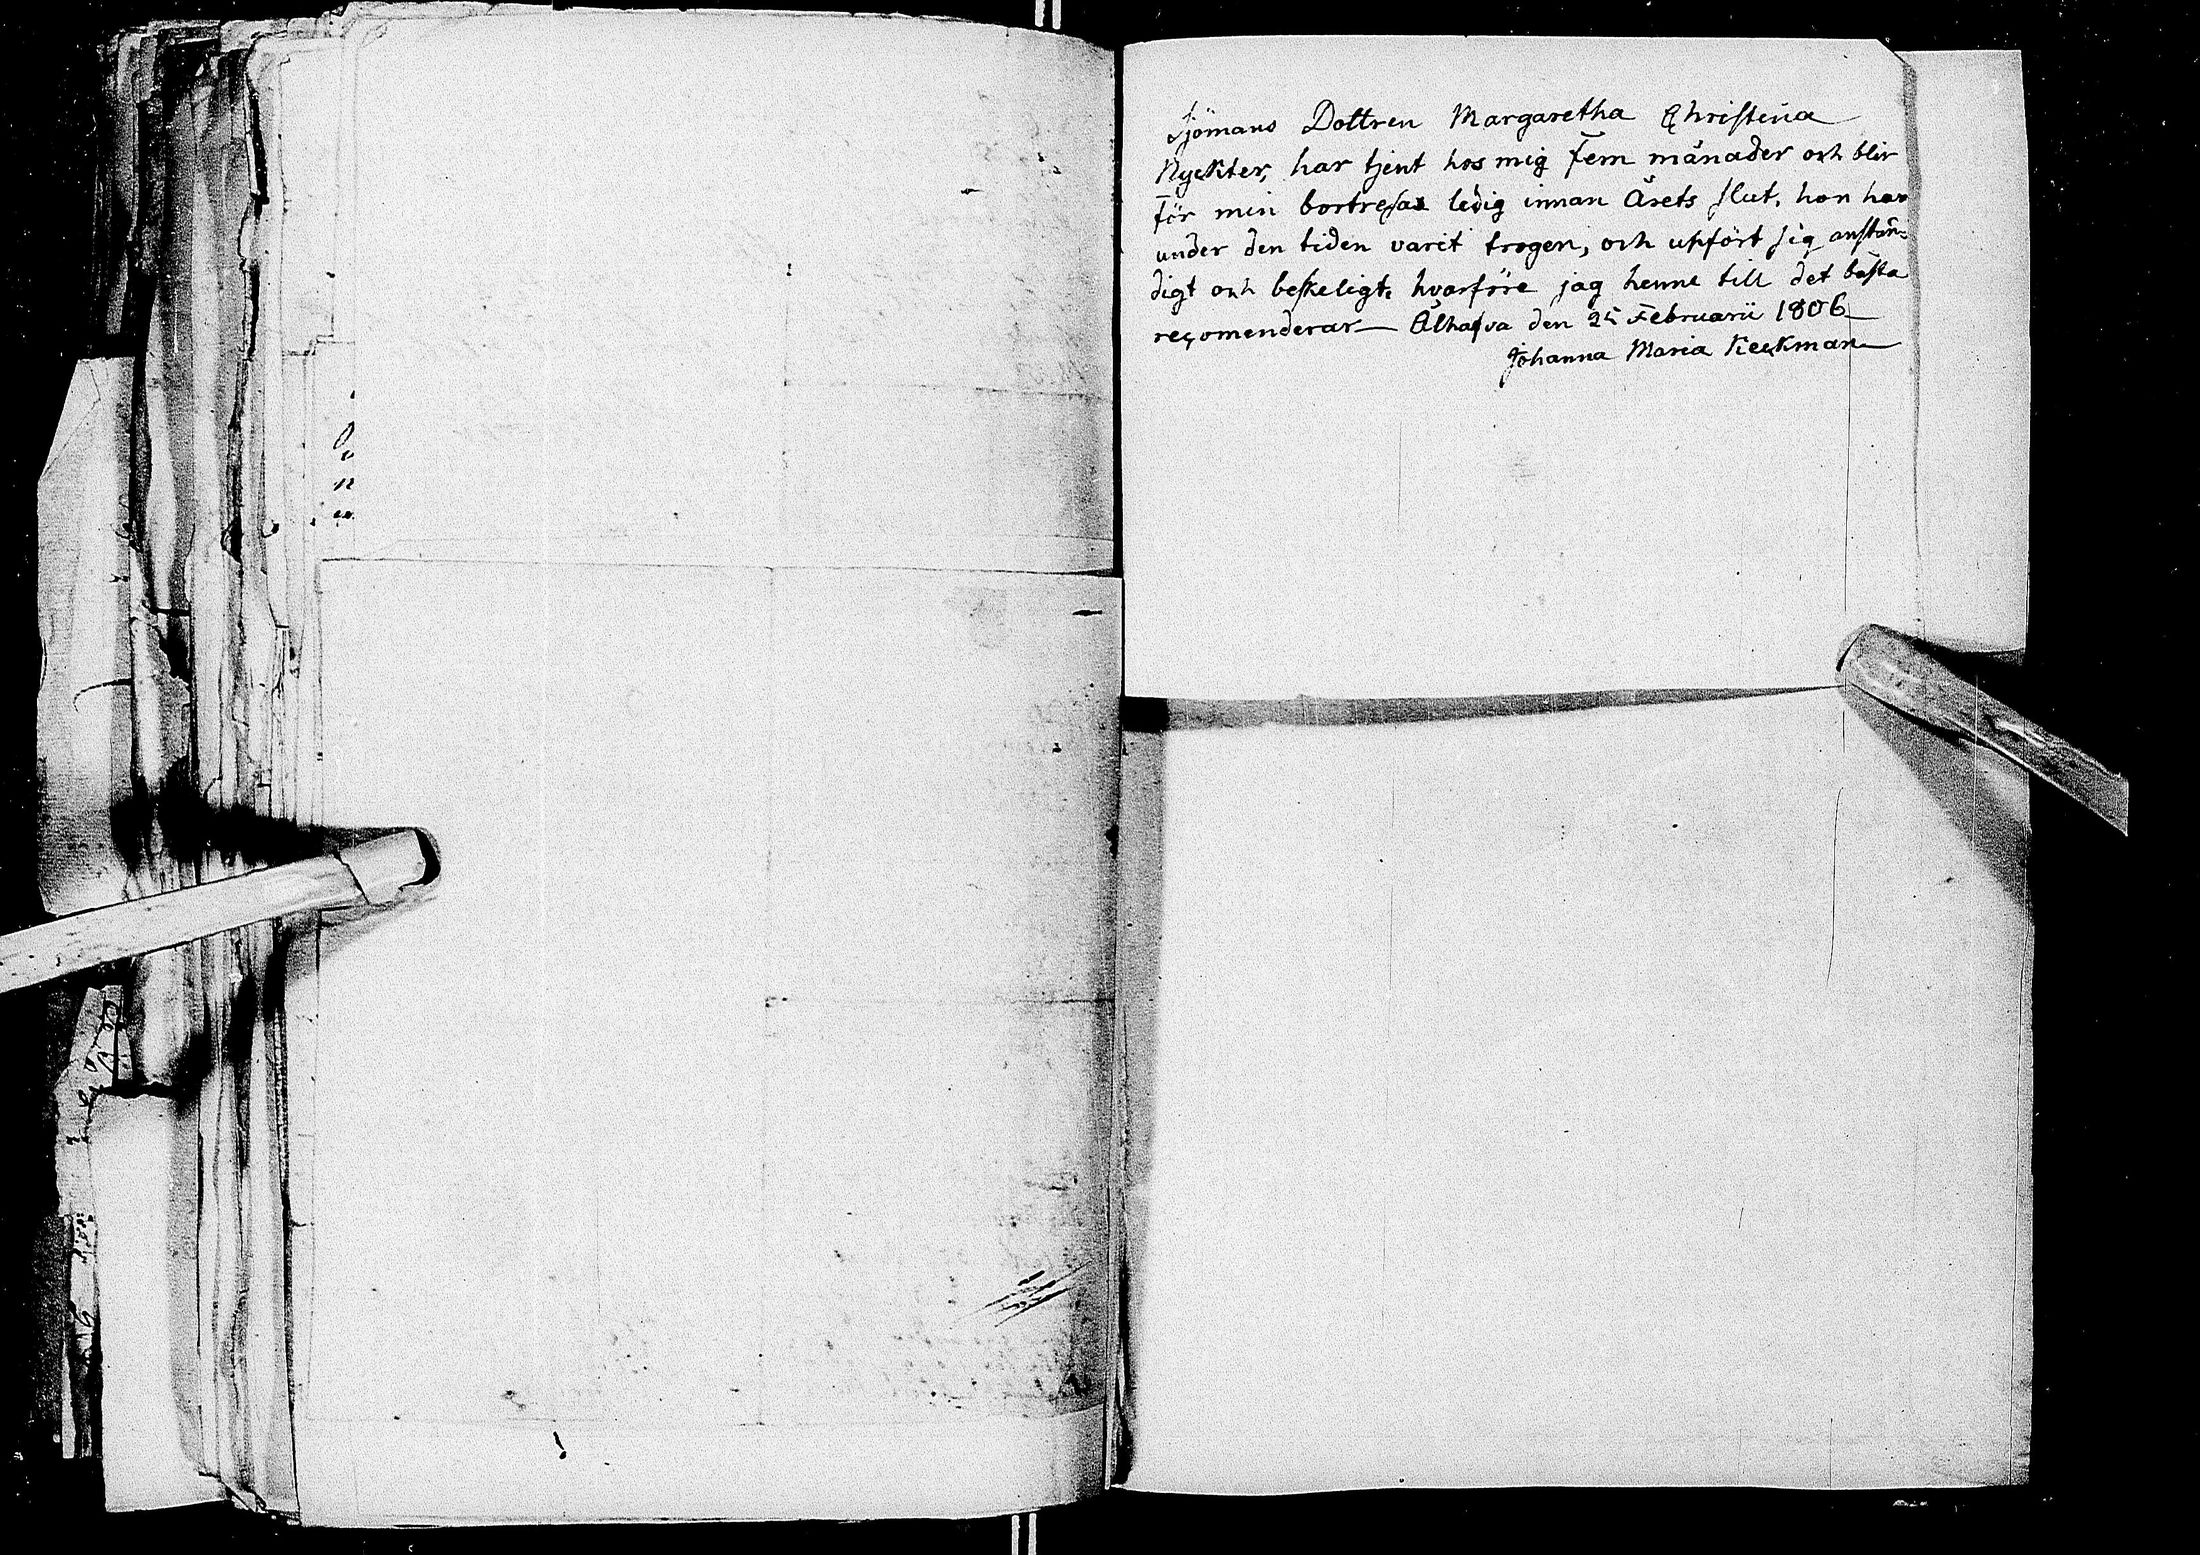 Sjömans Dottren Margaretha Christina
Nyckter, har tjent hos mig Fem månader och blir
För min bortresas ledig innan Årets slut, hon har
under den tiden varit trogen, och upfört sig anstän-
digt och beskeligt, hvarföre jag henne till det bästa
recomenderar Ålhafva den 25 Februarii 1806
Johanna Maria Keckman